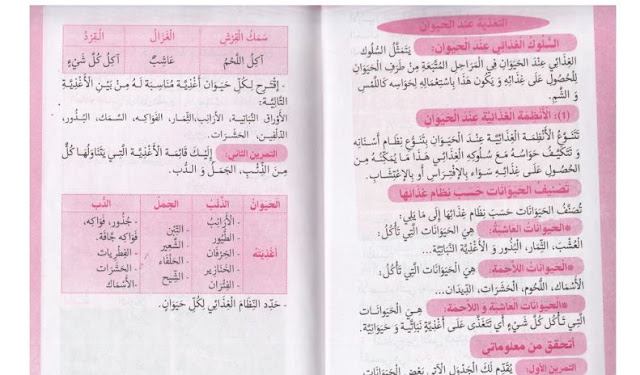 التغذية عند الحيوان
السُّلُوكُ الْغِذَائِي عِنْدَ الْحَيَوَان: يَتَمَثَّلُ السُّلُوك
الْغِذَائِي عِنْدَ الْحَيَوَان فِي الْمَرَاحِلِ الْمُتَّبَعَةِ مِنْ طَرَفِ الْحَيَوَان
لِلْحُصُولِ عَلَى غِذَائِهِ وَ يَكُونُ هَذَا بِاسْتِعْمَالِهِ لِحَوَاسِهِ كَاللَّمْسِ
وَ الشَّمِ.
(1): الْأَنْظِمَةُ الْغِذَائِيَّةُ عِنْدَ الْحَيَوَان
تَتَنَوَّعُ الْأَنْظِمَةُ الْغِذَائِيَّةُ عِنْدَ الْحَيَوَانِ بِتَنَوُّعِ نِظَامِ أَسْنَانِهِ
وَ تَتَكَيَّفُ حَوَاسُهُ مَعَ سُلُوكِهِ الْغِذَائِي هَذَا مَا يُمَكِّنُهُ مِنَ
الْحُصُولِ عَلَى غِذَائِهِ سَوَاء بِالْإِفْتِرَاسِ أَو بِالْإِعْتِشَابِ.
تَصْنِيفُ الْحَيَوَانَاتِ حَسَبَ نِظَامِ غِذَائِهَا
تُصَنَّفُ الْحَيَوَانَات حَسَبَ نِظَامِ غِذَائِهَا إِلَى مَا يَلِي:
*الْحَيَوَانَاتُ الْعَاشِبَةُ: هِيَ الْحَيَوَانَاتُ الَّتِي تَأْكُلُ:
الْعُشْب، الثِّمَار، الْبُذُور وَ الْأَغْذِيَة النَّبَاتِيَّة...
*الْحَيَوَانَاتُ اللَّاحِمَة: هِيَ الْحَيَوَانَاتُ الَّتِي تَأْكُلُ:
الْأَسْمَاك، اللُّحُوم، الْحَشَرَات، الدِّيدَان...
*الْحَيَوَانَات الْعَاشِبَة وَ اللَّاحِمَة: هِيَ الْحَيَوَانَات
الَّتِي تَأْكُلُ كُلَّ شَيْءٍ أَيْ تَتَغَذَّى عَلَى أَغْذِيَةٍ نَبَاتِيَّةٍ وَ حَيَوَانِيَّة.
أتحقق من معلوماتي
التمرين الأول: يُقَدِّمُ لَكَ الْجَدْوَلُ الْآتِي بَعْضَ الْحَيَوَانَات
سَمَكُ الْقِرْشِ الْغَزَال الْقِرْدُ
آكِلُ اللَّحْمُ عَاشِبٌ آكِلُ كُلَّ شَيْءٍ
- إِقْتَرِح لِكُلِّ حَيَوَان أَغْذِيَة مُنَاسِبَة لَهُ مِنْ بَيْنِ الْأَغْذِيَةِ
التَّالِيَة:
الْأَوْرَاق النَّبَاتِيَة، الْأَرَانِب، الثِّمَار، الْفَوَاكِه، السَّمَاك، الْبُذُور،
الدُّلْفِين، الْحَشَرَات.
التمرين الثاني: إِلَيْكَ قَائِمَة الْأَغْذِيَةِ الَّتِي يَتَنَاوَلُهَا كُلٌّ
مِنَ الذِّئْبِ، الْجَمَلُ وَ الدُّب.
الحَيَوان الذِّئْبُ الجَمَلُ الدُّب
أَغْذِيَتُه
- الْأَرَانِبُ
- الطُّيُور
- الْخِرْفَان
- الْخَنَازِير
- الْفِئْرَان
- التِّبْن
- الشَّعِير
- الْحَلْفَاء
- الشِّيح
- جُذُور، فَوَاكِه،
فَوَاكِه جَافَّة.
- الْفِطْرِيَات
- الْحَشَرَات
- الْأَسْمَاك
- حَدِّد النِّظَامَ الْغِذَائِي لِكُلِّ حَيَوَانٍ.